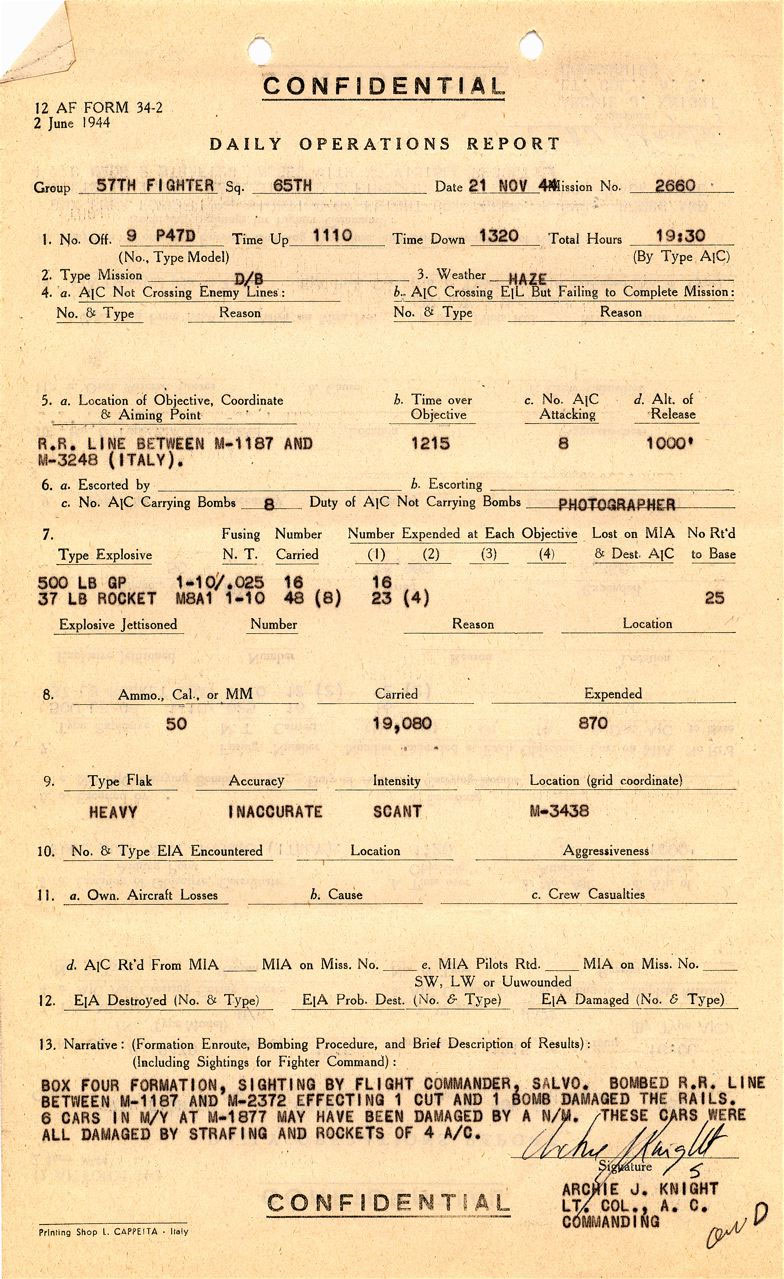 CONFIDENTIAL
12 AF FORM 34-2
2 June 1944
DAILY OPERATIONS REPORT
Group 57TH FIGHTER Sq. 65TH Date 21 NOV 44 Mission No. 2660
1. No. Off. 9 P47D Time Up 1110 Time Down 1320 Total Hours 19:30
(No., Type Model) (By Type A|C)
2. Type Mission D/B 3. Weather HAZE
4. a. A|C Not Crossing Enemy Lines: b. A|C Crossing E|L But Failing to Complete Mission:
No. & Type Reason No. & Type Reason
5. a. Location of Objective, Coordinate b. Time over c. No. A|C d. Alt. of
& Aiming Point Objective Attacking Release
R.R. LINE BETWEEN M-1187 AND 1215 8 1000'
M-3248 (ITALY).
6. a. Escorted by b. Escorting
c. No. A|C Carrying Bombs 8 Duty of A|C Not Carrying Bombs PHOTOGRAPHER
7. Fusing Number Number Expended at Each Objective Lost on MIA No Rt'd
Type Explosive N. T. Carried (1) (2) (3) (4) & Dest. A|C to Base
500 LB GP 1-10/.025 16 16
37 LB ROCKET M8A1 1-10 48 (8) 23 (4) 25
Explosive Jettisoned Number Reason Location
8. Ammo., Cal., or MM Carried Expended
50 19,080 870
9. Type Flak Accuracy Intensity Location (grid coordinate)
HEAVY INACCURATE SCANT M-3438
10. No. & Type E|A Encountered Location Aggressiveness
11. a. Own. Aircraft Losses b. Cause c. Crew Casualties
d. A|C Rt'd From MIA MIA on Miss. No. e. MIA Pilots Rtd. MIA on Miss. No.
SW, LW or Uuwounded
12. E|A Destroyed (No. & Type) E|A Prob. Dest. (No. & Type) E|A Damaged (No. & Type)
13. Narrative: (Formation Enroute, Bombing Procedure, and Brief Description of Results):
(Including Sightings for Fighter Command):
BOX FOUR FORMATION, SIGHTING BY FLIGHT COMMANDER, SALVO. BOMBED R.R. LINE
BETWEEN M-1187 AND M-2372 EFFECTING 1 CUT AND 1 BOMB DAMAGED THE RAILS.
6 CARS IN M/Y AT M-1877 MAY HAVE BEEN DAMAGED BY A N/M. THESE CARS WERE
ALL DAMAGED BY STRAFING AND ROCKETS OF 4 A/C.
Archie J Knight
Signature
ARCHIE J. KNIGHT
LT. COL., A. C.
COMMANDING
CONFIDENTIAL
Printing Shop L. CAPPEITA - Italy